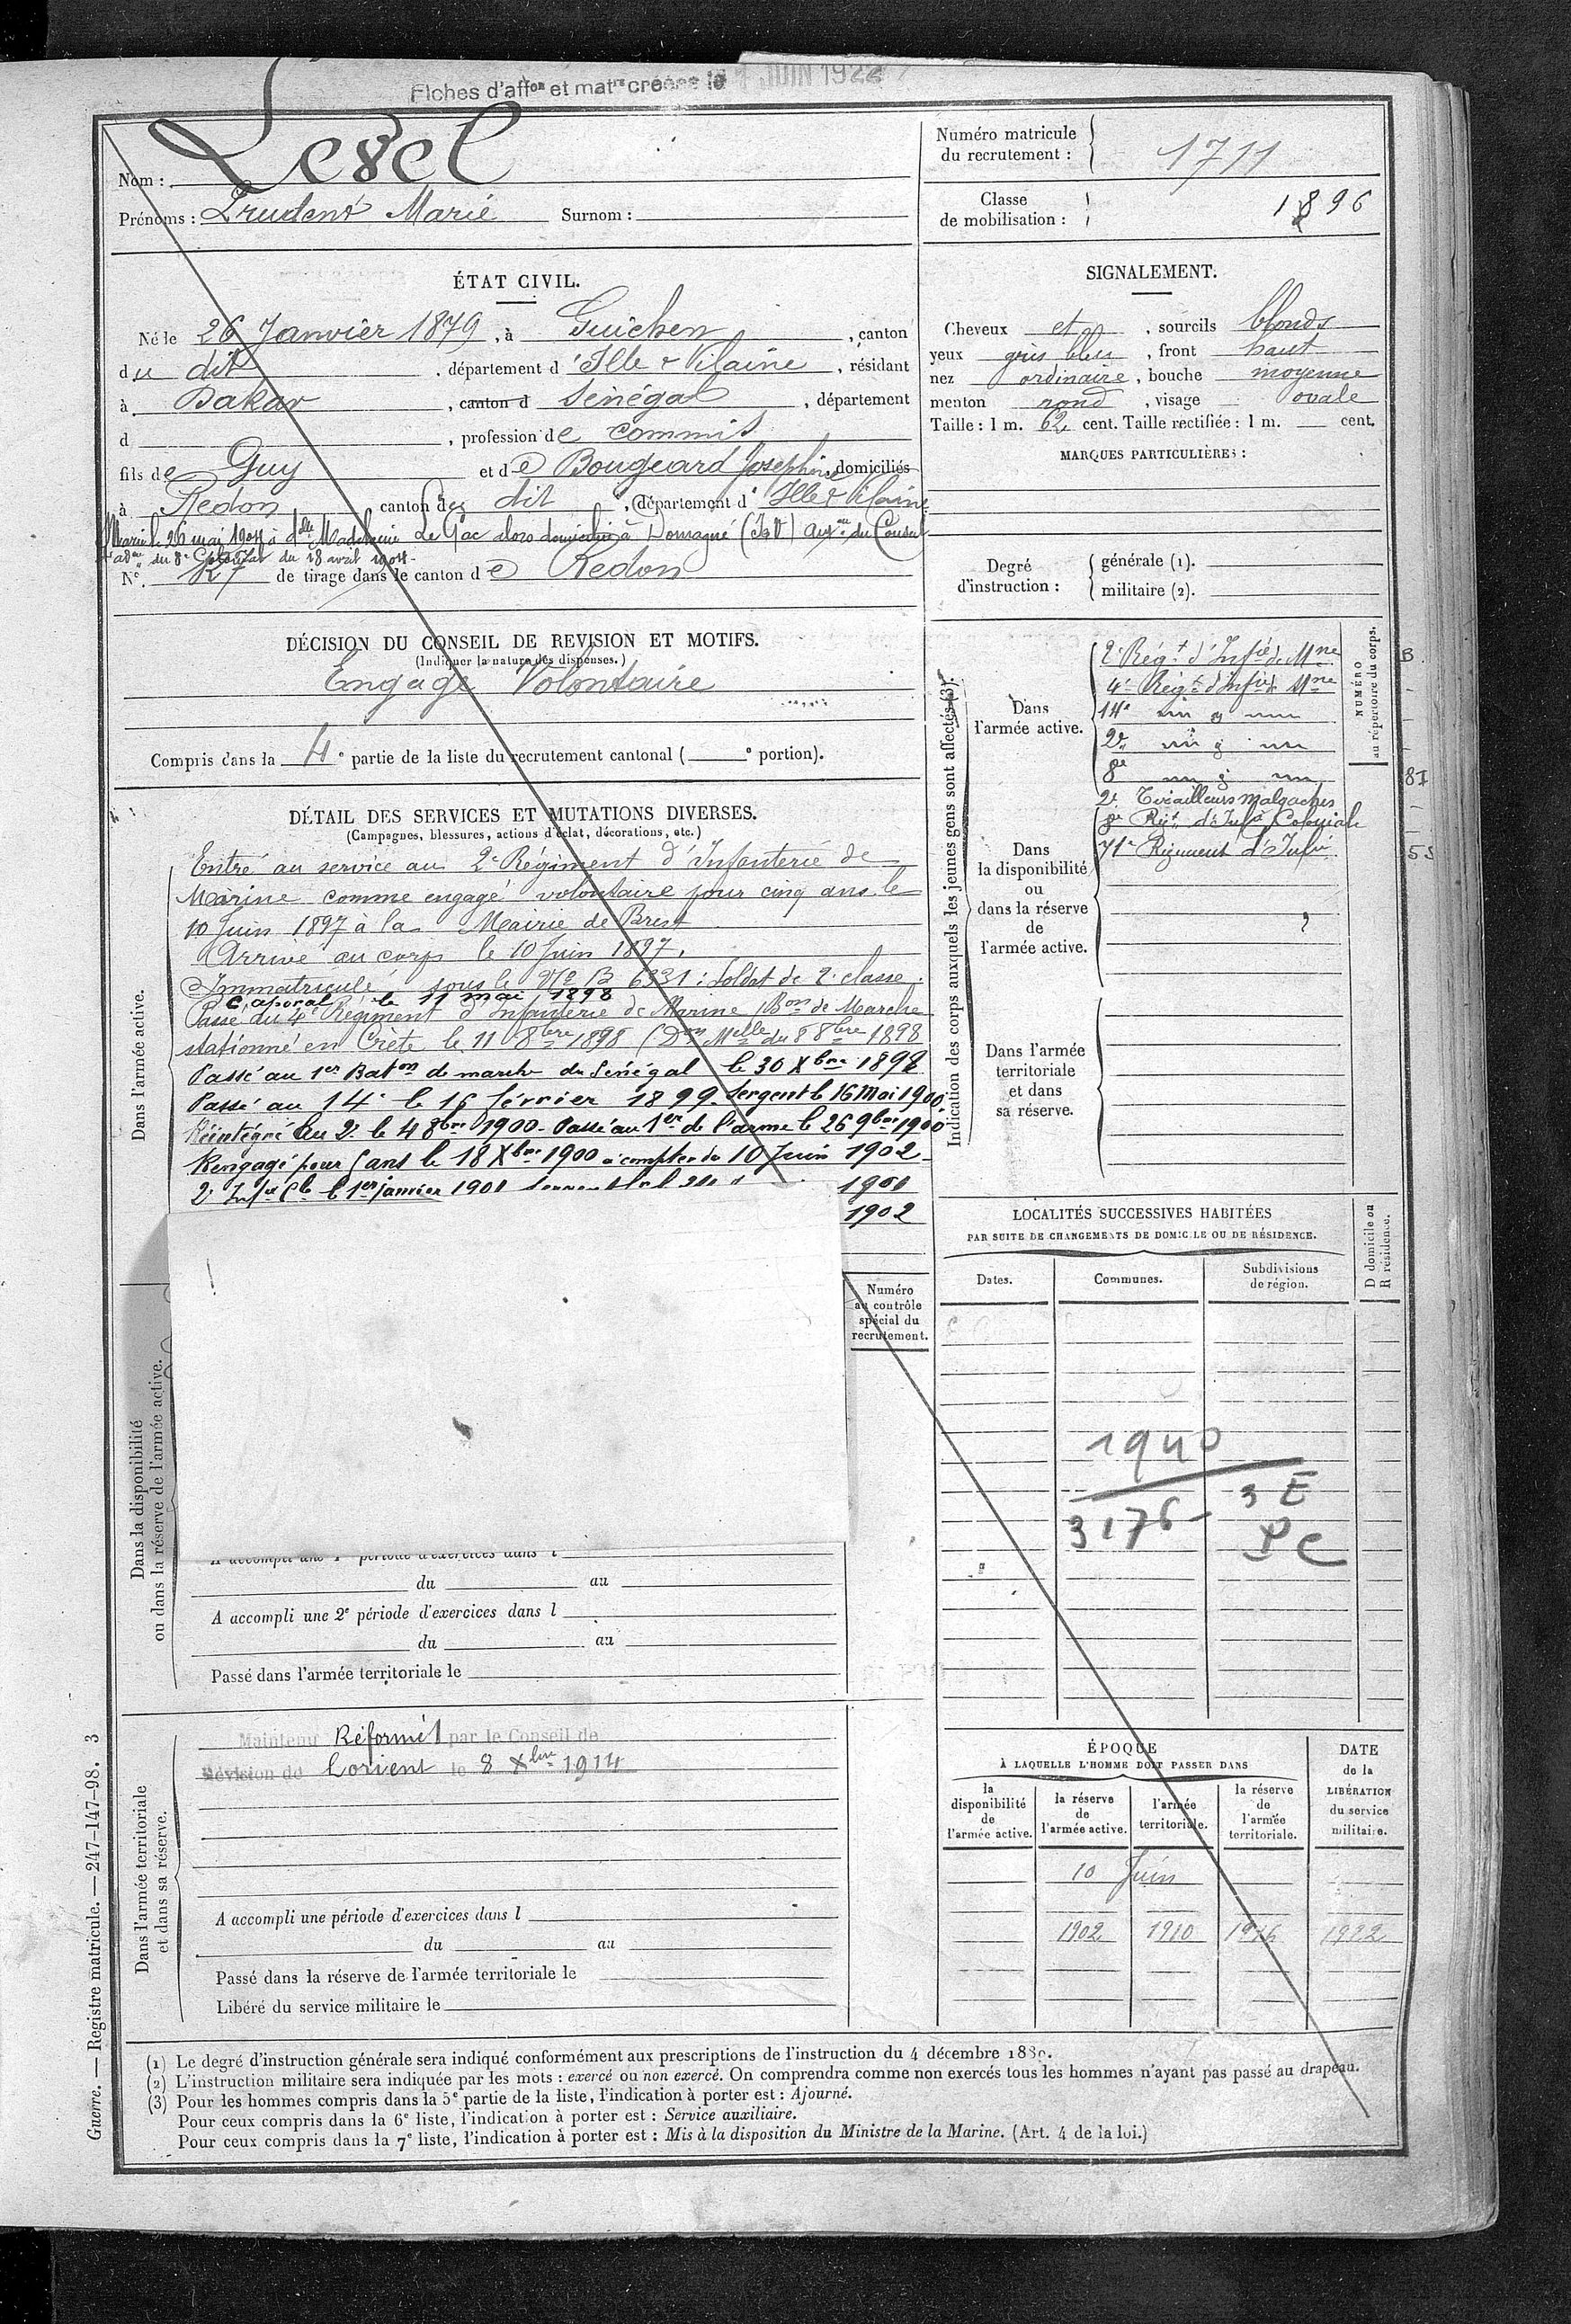 Fiches d'affon et matre créées le 1 JUIN 1922
Nom : Lesel
Prénoms : Prudent Marie Surnom :
Numéro matricule du recrutement : 1711
Classe de mobilisation : 1896
ÉTAT CIVIL.
Né le 26 Janvier 1879, à Guichen, canton
du dit, département d'Ille & Vilaine, résidant
à Dakar, canton d Sénégal, département
d , profession de commis
fils de Guy et de Bougeard Joséphine domiciliés
à Redon canton du dit, département d'Ille & Vilaine
Marié le 26 mai 1904 à dlle Madeleine Le Gac alors domiciliée à Domagné (I&V) auton du Conseil
d'adon du 8e Colonial du 18 avril 1904-
No. 127 de tirage dans le canton de Redon
SIGNALEMENT.
Cheveux et , sourcils blonds
yeux gris bleu, front haut
nez ordinaire, bouche moyenne
menton rond, visage ovale
Taille : 1 m. 62 cent. Taille rectifiée : 1 m. cent.
MARQUES PARTICULIÈRES :
Degré d'instruction :
générale (1).
militaire (2).
DÉCISION DU CONSEIL DE REVISION ET MOTIFS.
(Indiquer la nature des dispenses.)
Engagé Volontaire
Compris dans la 4e partie de la liste du recrutement cantonal ( e portion).
DÉTAIL DES SERVICES ET MUTATIONS DIVERSES.
(Campagnes, blessures, actions d'éclat, décorations, etc.)
Dans l'armée active.
Entré au service au 2e Régiment d'Infanterie de
Marine comme engagé volontaire pour cinq ans le
10 Juin 1897 à la Mairie de Brest
Arrivé au corps le 10 Juin 1897.
Immatriculé sous le No B 6331 : Soldat de 2e classe.
Caporal le 11 mai 1898
Passé du 4e Régiment d'Infanterie de Marine (Bon de Marche
stationné en Crète le 11 8bre 1898 (Don Melle du 8 8bre 1898
Passé au 1er Baton de marche du Sénégal le 30 Xbre 1898
Passé au 14e le 16 février 1899. Sergent le 16 Mai 1900
Réintégré au 2e le 4 8bre 1900 - Passé au 1er de l'arme le 26 9bre 1900
Rengagé pour 5 ans le 18 Xbre 1900 à compter du 10 Juin 1902-
2e Infie Cle le 1er janvier 1901 1901
1902
Indication des corps auxquels les jeunes gens sont affectés (3).
NUMÉRO au répertoire du corps.
Dans l'armée active.
2e Régt d'Infie de Mne B
4e Régt d'Infie de Mne -
14e -
2e -
8e 81
2e Tirailleurs malgaches -
Dans la disponibilité ou dans la réserve de l'armée active.
8e Rgt d'Infie Coloniale -
71e Régiment d'Infie 55
Dans l'armée territoriale et dans sa réserve.
LOCALITÉS SUCCESSIVES HABITÉES
PAR SUITE DE CHANGEMENTS DE DOMICILE OU DE RÉSIDENCE.
D domicile ou R résidence.
Dates.
Communes.
Subdivisions de région.
1940
3176- 3 E
PC
Numéro au contrôle spécial du recrutement.
Dans la disponibilité ou dans la réserve de l'armée active.
A accompli une 1 période d'exercices dans l
du au
A accompli une 2e période d'exercices dans l
du au
Passé dans l'armée territoriale le
Dans l'armée territoriale et dans sa réserve.
Maintenu Réformé par le Conseil de
Révision de Lorient le 8 Xbre 1914
A accompli une période d'exercices dans l
du au
Passé dans la réserve de l'armée territoriale le
Libéré du service militaire le
ÉPOQUE
À LAQUELLE L'HOMME DOIT PASSER DANS
la disponibilité de l'armée active.
la réserve de l'armée active.
l'armée territoriale.
la réserve de l'armée territoriale.
DATE de la LIBÉRATION du service militaire.
10 Juin
1902 1910 1916 1922
(1) Le degré d'instruction générale sera indiqué conformément aux prescriptions de l'instruction du 4 décembre 1889.
(2) L'instruction militaire sera indiquée par les mots : exercé ou non exercé. On comprendra comme non exercés tous les hommes n'ayant pas passé au drapeau.
(3) Pour les hommes compris dans la 5e partie de la liste, l'indication à porter est : Ajourné.
Pour ceux compris dans la 6e liste, l'indication à porter est : Service auxiliaire.
Pour ceux compris dans la 7e liste, l'indication à porter est : Mis à la disposition du Ministre de la Marine. (Art. 4 de la loi.)
Guerre. — Registre matricule. — 247-147-98. 3